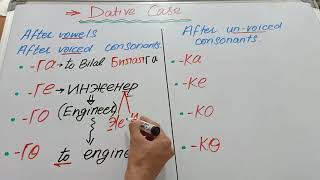 → Dative Case
After vowels
After voiced consonants.
• -га → to Bilal Билалга
• -ге → ИНЖЕНЕР
• -го (Engineer)
• -гө to engine
After un-voiced
consonants.
• -ка
• -ке
• -ко
• -кө